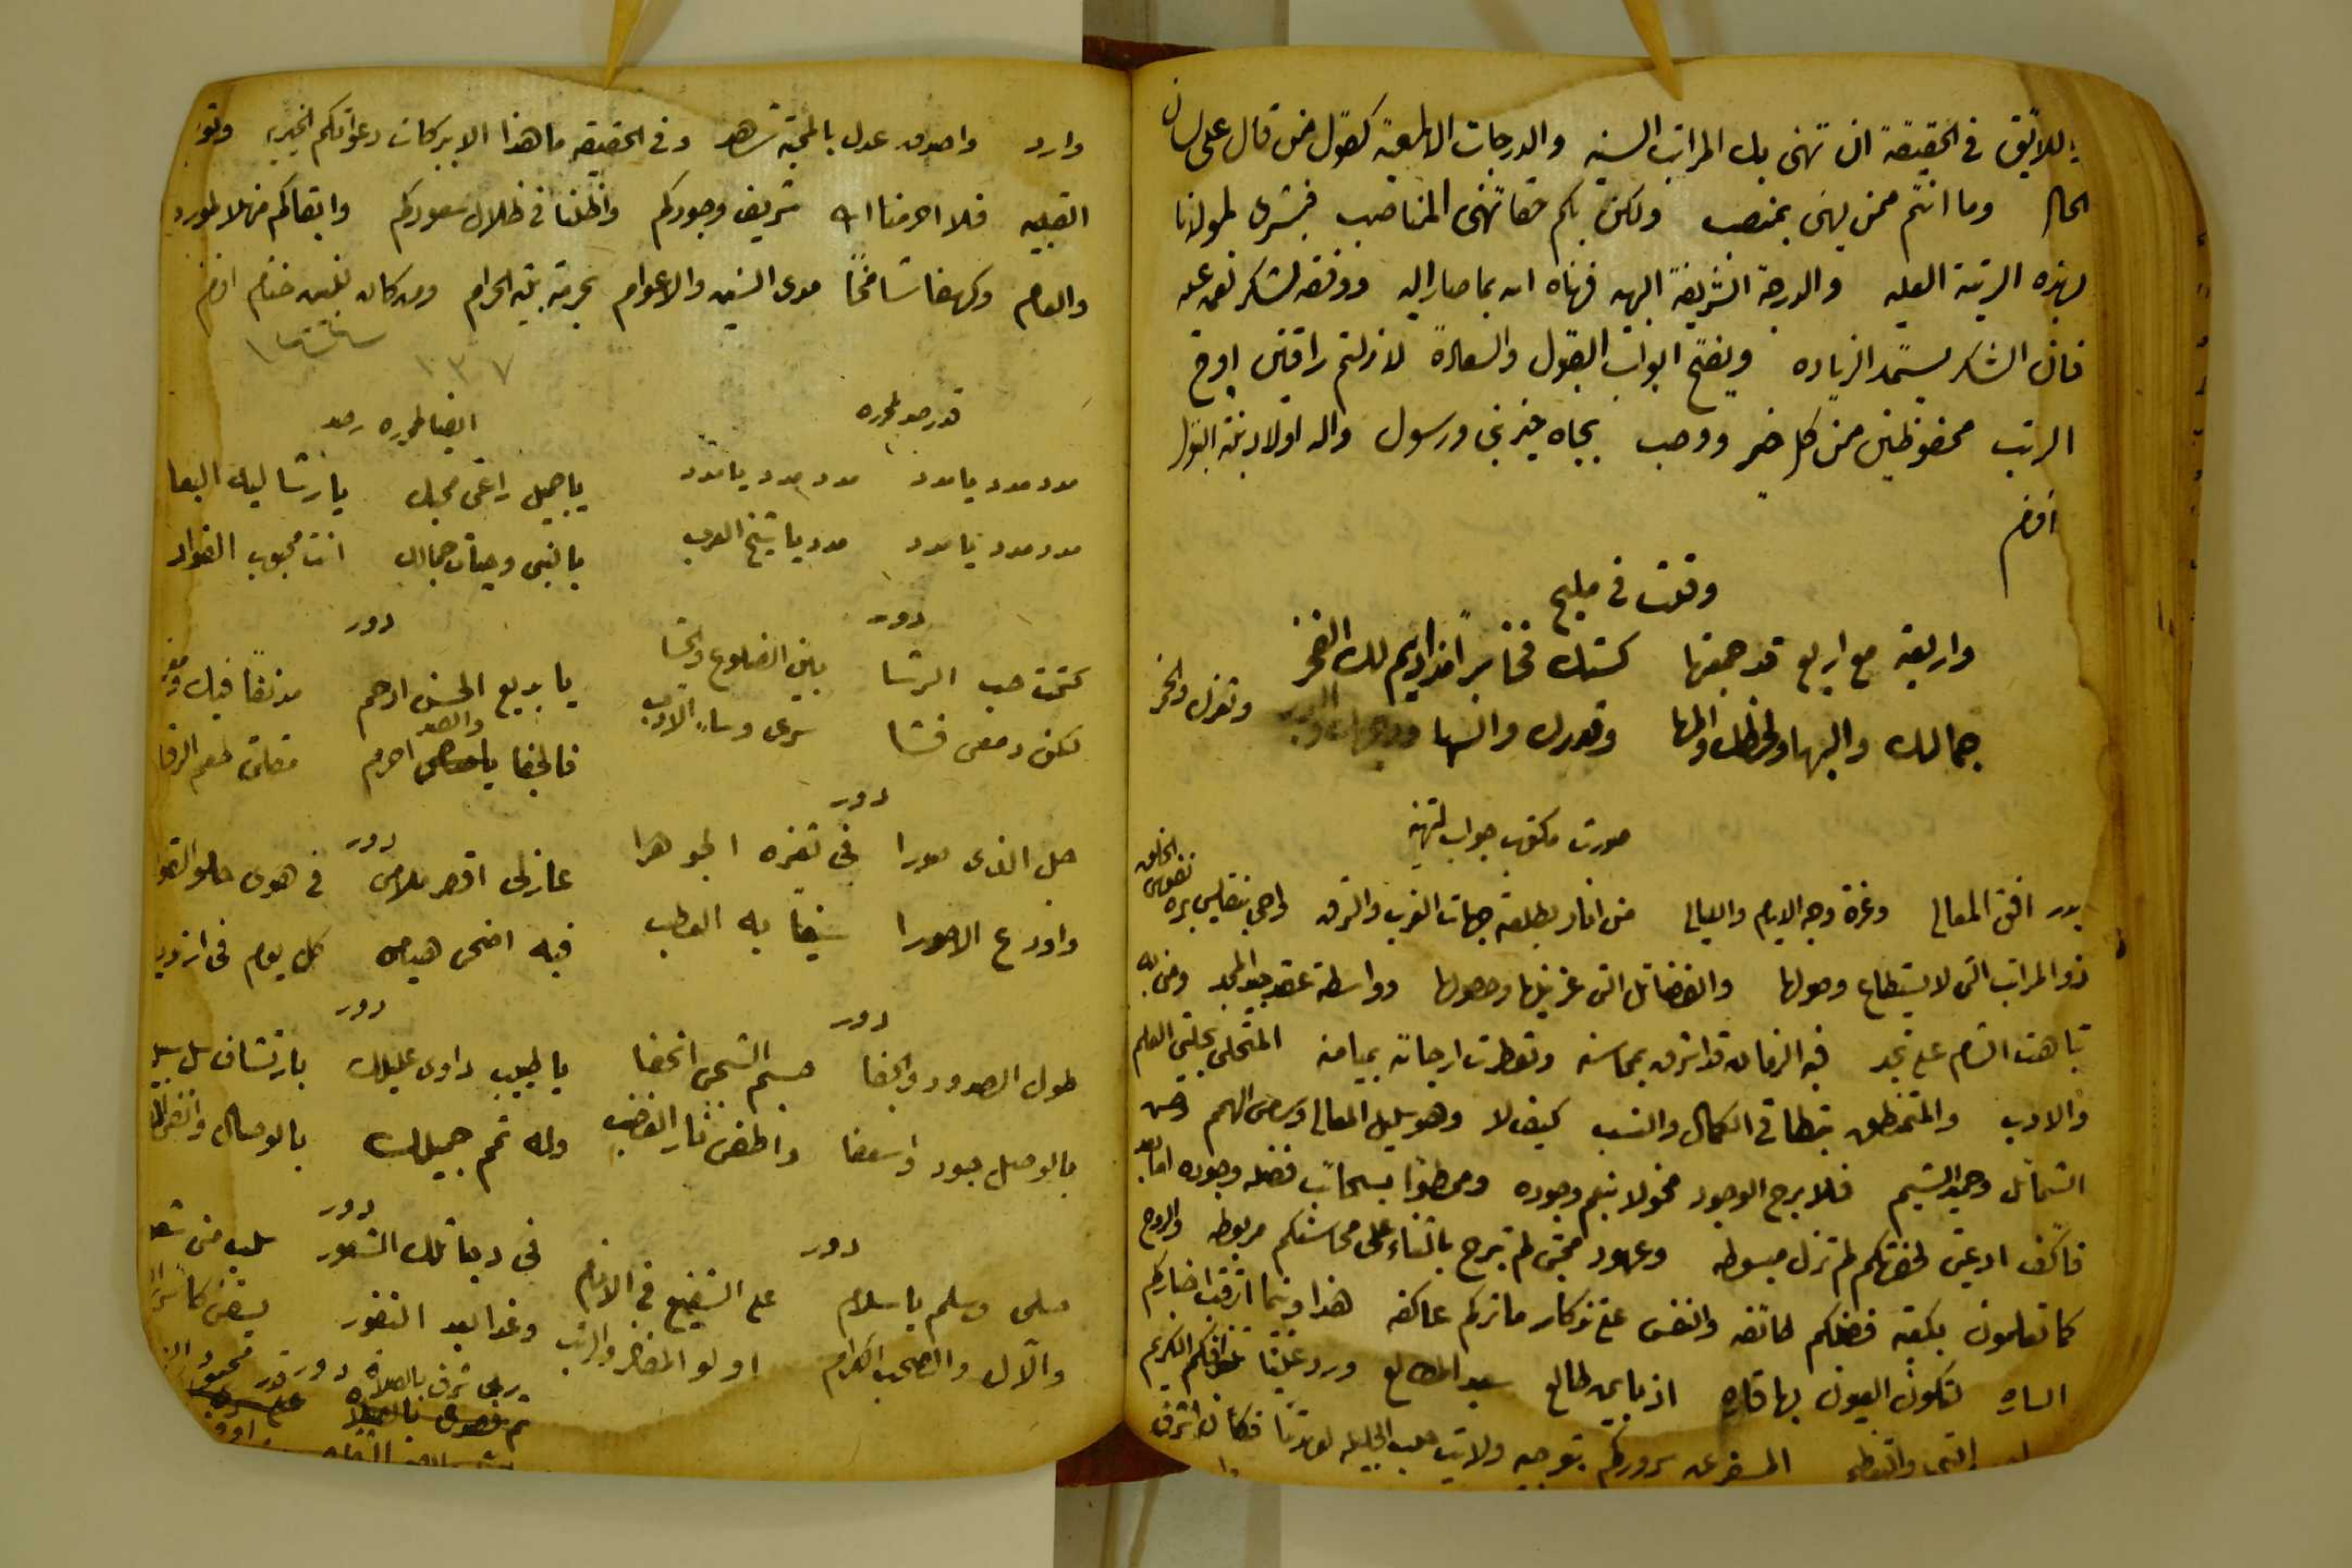 اللايق في الحقيقة ان تهنى بك المراتب السنيه والدرجات العليه كقول من قال على لسان
الحال وما انتم ممن يهنى بمنصب ولكن بكم حقا تهنى المناصب فبشرى لمولانا
بهذه الرتبة العليه والدرجة الشريفة البهيه فهناه الله بما صار اليه ووفقه لشكر نعمه عليه
فان الشكر يستمد الزياده ويفتح ابواب القبول والسعادة لا زلتم راقين اوج
الرتب محفوظين من كل ضر ووصب بجاه خير نبي ورسول واله اولاد بنته البتول
افندم
وقلت في مليح
واربعة مع اربع قد جمعتها كستك فخارا مذ اديم لك الفخر
جمالك والبها ولحظك والمها وقدرك والسها والبدر وثغرك والخمر
صورت مكتوب جواب تهنيه
بدر افق المعالي وغرة وجه الايام والليالي من انار بطلعته جهات الغرب والشرق
ذو المراتب التي لا يستطاع وصولها والفضائل التي عز نيلها وحصولها وواسطة عقد جيد المجد ومن به
تباهت الشام على نجد فيه الزمان قد اشرق بمحاسنه وتعطرت ارجائه بميامنه المتحلي بحليتي العلم
والادب والمتمنطق بنطاقي الكمال والنسب كيف لا وهو سليل المعالي وسامي الهمم وحسن
الشمائل وحميد الشيم فلا برح الوجود مخمولا بنعم وجوده وممطورا بسحائب فضله وجوده اما بعد
فاكف ادعيتي لحضرتكم لم تزل مبسوطه وعهود محبتي لم تبرح بالثناء على محاسنكم مربوطه والروح
كما تعلمون بكعبة فضلكم طائفه والنفس على تذكار ماثركم عاكفه هذا وبينما ارتقب اخباركم
الساره لتكون العيون بها قاره اذ باين طالع سعيد المطالع ورد علينا الكريم
المسفر عن سروركم بتوجيه ولايت حلب الجليله لعهدتنا فكان اشرف
وارد واصدق عدل بالمحبة شاهد وفي الحقيقه ما هذا الا ببركات دعواتكم الخيريه
القلبيه فلا احرمنا الله شريف وجودكم واظلنا في ظلال سعودكم وابقاكم منهلا للمورد
والعام وكهفا شامخا مدى السنين والاعوام بحرمة بيته الحرام ومن كان للنبيين ختام افندم
١٢٣٧
قد رصد لمحرره
مدد مدد يا مدد مدد مدد يا مدد
مدد مدد يا مدد مدد يا شيخ العرب
دور
كتمت حب الرشا بين الضلوع والحشا
لكن دمعي فشا سري وساء الادب
دور
جل الذي صورا في ثغره الجوهرا
واودع الاحورا سيفا به العطب
دور
طول الصدود والجفا جسم الشجي انحفا
بالوصل جود واسعفا واطفي نار الغضب
دور
صلي وسلم يا سلام على الشفيع في الانام
والآل والصحب الكرام اولو المفاخر والرتب
ايضا لمحرره رصد
يا جميل راعي محبك يا رشا ليك البعا
يا لنبي وحيات جمالك انت محبوب الفواد
دور
يا بديع الحسن ارحم مدنفا فيك
فالجفا والصد احرم مقلتي طعم الرقا
دور
عازلي اقصر ملامي في هوى حلو القوا
فيه اضحى هيامي كل يوم في ازدياد
دور
يا طبيب داوي عليلك بارتشاف سلسبيل
وله تمم جميلك بالوصال
دور
في دجا تلك الشعور سلب مني
وغدا بعد النفور يسقني كاس
دور
ربي شرف بالصلاة